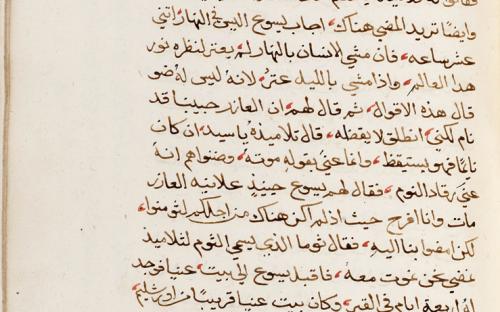 وايضًا تريد المضي هناك، اجاب يسوع اليس في النهار اثنتي
عشر ساعه، فان مشي الانسان بالنهار لم يعتر لنظره نور
هدا العالم، واذا مشي بالليل عتر، لانه ليس له ضو
قال هذه الاقوال، ثم قال لهم، ان العازر حبيبنا قد
نام لكني انطلق لايقظه، قال تلاميذه ياسيد، ان كان
نائمًا فهو يستيقظ، وانما عني بقوله موته، وضنوا هم انه
عني رقاد النوم، فقال لهم يسوع حينيذٍ علانيه العازر
مات وانا افرح حيث اذ لم اكن هناك من اجلكم لتومنوا،
لكن امضوا بنا اليه، فقال توما الذي يسمي التوم لتلاميذ
نمضي نحن نموت معه، فاقبل يسوع الي بيت عنيا فوجد
له اربعة ايام في القبر، وكان بيت عنيا قريبًا من اورشليم،